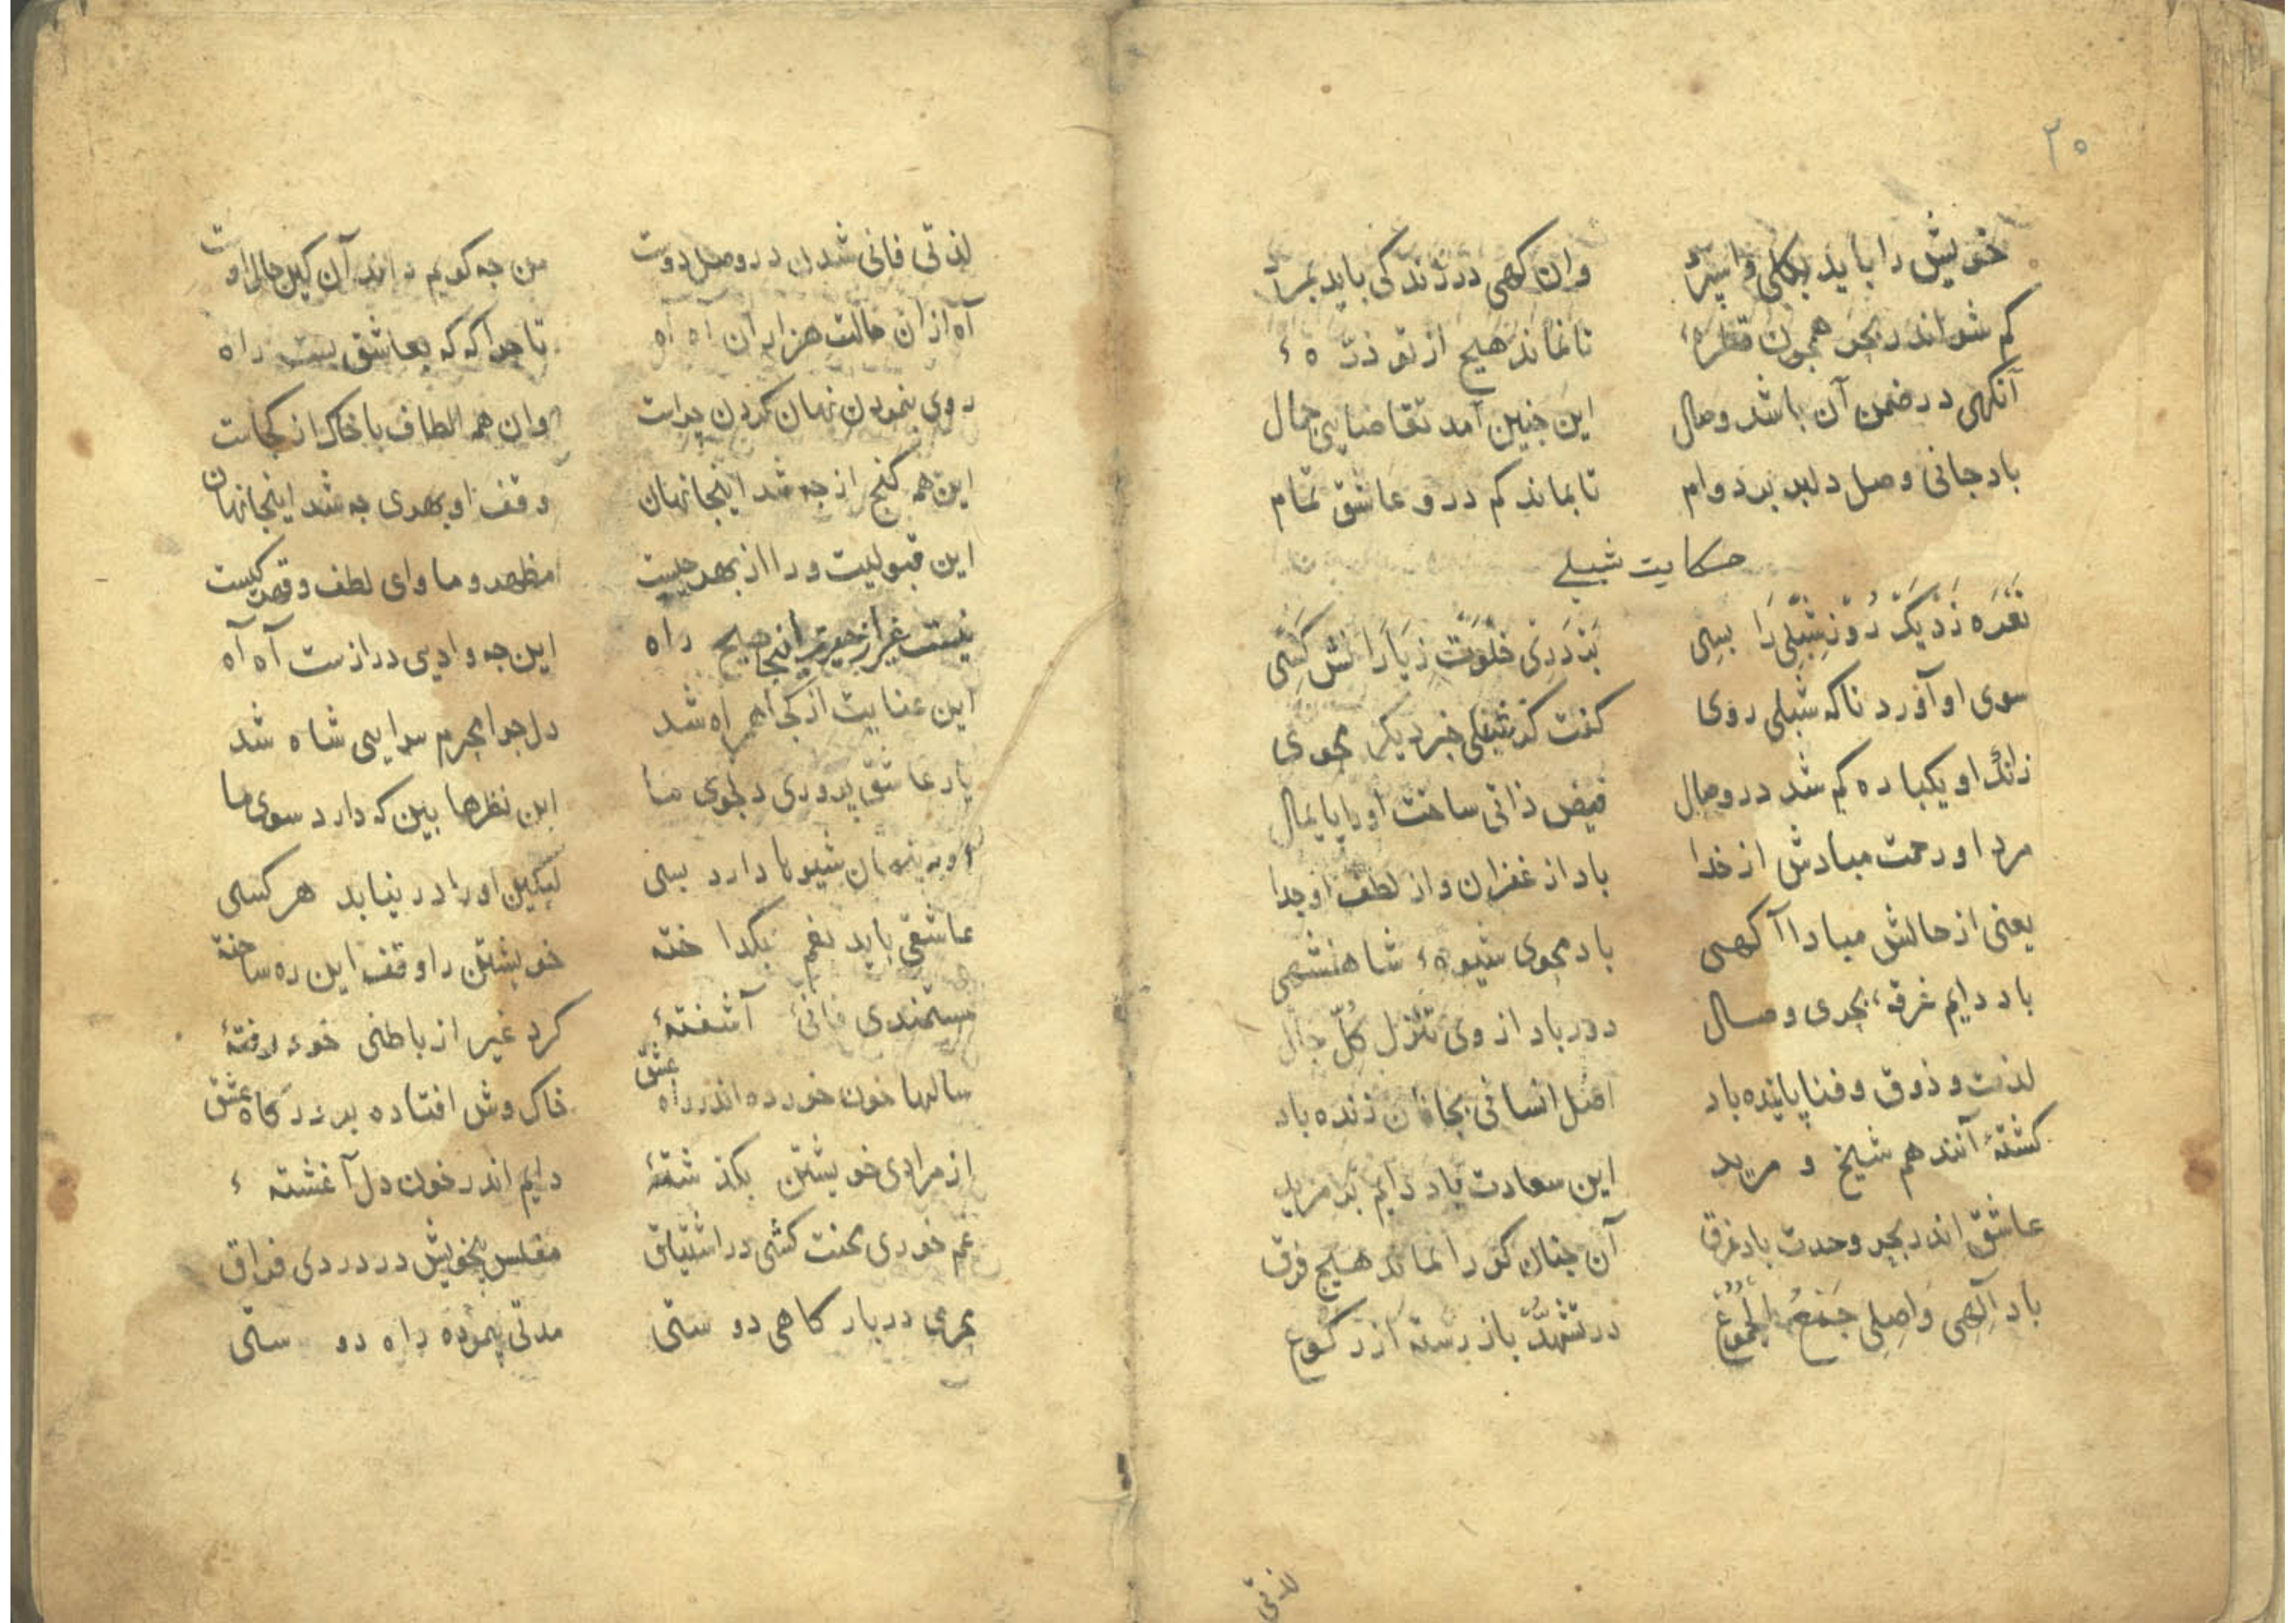 ۲۰
خویش را باید بکلی واسپرد وان کهی در زندکی باید بمرد
کم شو اندر بحر همچون قطرهٔ تا نماند هیچ از تو ذرّهٔ
آنکهی در ضمن آن باشد وصال این چنین آمد تقاضایی جمال
باد جانی وصل دلبر بر دوام تا بماند کم درو عاشق تمام
حکایت شبلی
نعره زد یک روز شبلی را بسی بر دری خلوت ز یارانش کسی
سوی او آورد ناکه شبلی روی کفت کز شبلی خبر دیکر مجوی
زانک او یکباره کم شد در وصال فیض ذاتی ساخت او را پایمال
مرد او رحمت مبادش از خدا باد از غفران و از لطف او جدا
یعنی از حالش مبادا آکهی باد محوی شیوهٔ شاهنشهی
باد دایم غرقهٔ بحری وصال دور باد از وی تنزل کل حال
لذت و ذوق و فنا پاینده باد اصل انسانی بجانان زنده باد
کشتهٔ آنند هم شیخ و مرید این سعادت باد دایم بر مزید
عاشق اندر بحر وحدت باد غرق آن چنان کو را نماند هیچ فرق
باد آلهی واصلی جمع الجموع در تشهد باز رسته از رکوع
لذتی
لذتی فانی شدن در وصل دوست من چه کویم داند آن کین حال اوست
آه از آن حالت هزاران آه آه تا چرا که که بعاشق بست راه
روی بنمودن نهان کردن چراست وان همه الطاف با خاک از کجاست
این همه کنج از چه شد اینجا نهان وقف او بهری چه شد اینجا نهان
این قبولیت ورا از بهر چیست مظهر و ماوای لطف و قهر کیست
نیست غیر از حیرت اینجا هیچ راه این چه وادیی درازست آه آه
این عنایت از کجا همراه شد دل چرا محرم سرایی شاه شد
یار عاشق پروری دلجوی ما این نظرها بین که دارد سوی ما
شیوها دارد بسی لیکن او را در نیابد هر کسی
عاشقی باید بغم بکداخته خویشتن را وقف این ره ساخته
مستمندی فانیٔ آشفتهٔ کرد غیر از باطنی خود رفتهٔ
سالها خون خورده اندر راه عشق خاک وش افتاده بر درکاه عشق
از مرادی خویشتن بکذشتهٔ دایم اندر خون دل آغشتهٔ
غم خوری محنت کشی در اشتیاق مفلس بخویش در دردی فراق
عمری در بارکاهی دوستی مدتی پیموده راه دوستی